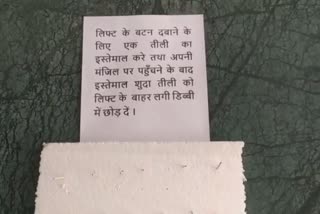 लिफ्ट के बटन दबाने के
लिए एक तीली का
इस्तेमाल करे तथा अपनी
मंजिल पर पहुँचने के बाद
इस्तेमाल शुदा तीली को
लिफ्ट के बाहर लगी डिब्बी
में छोड़ दें ।